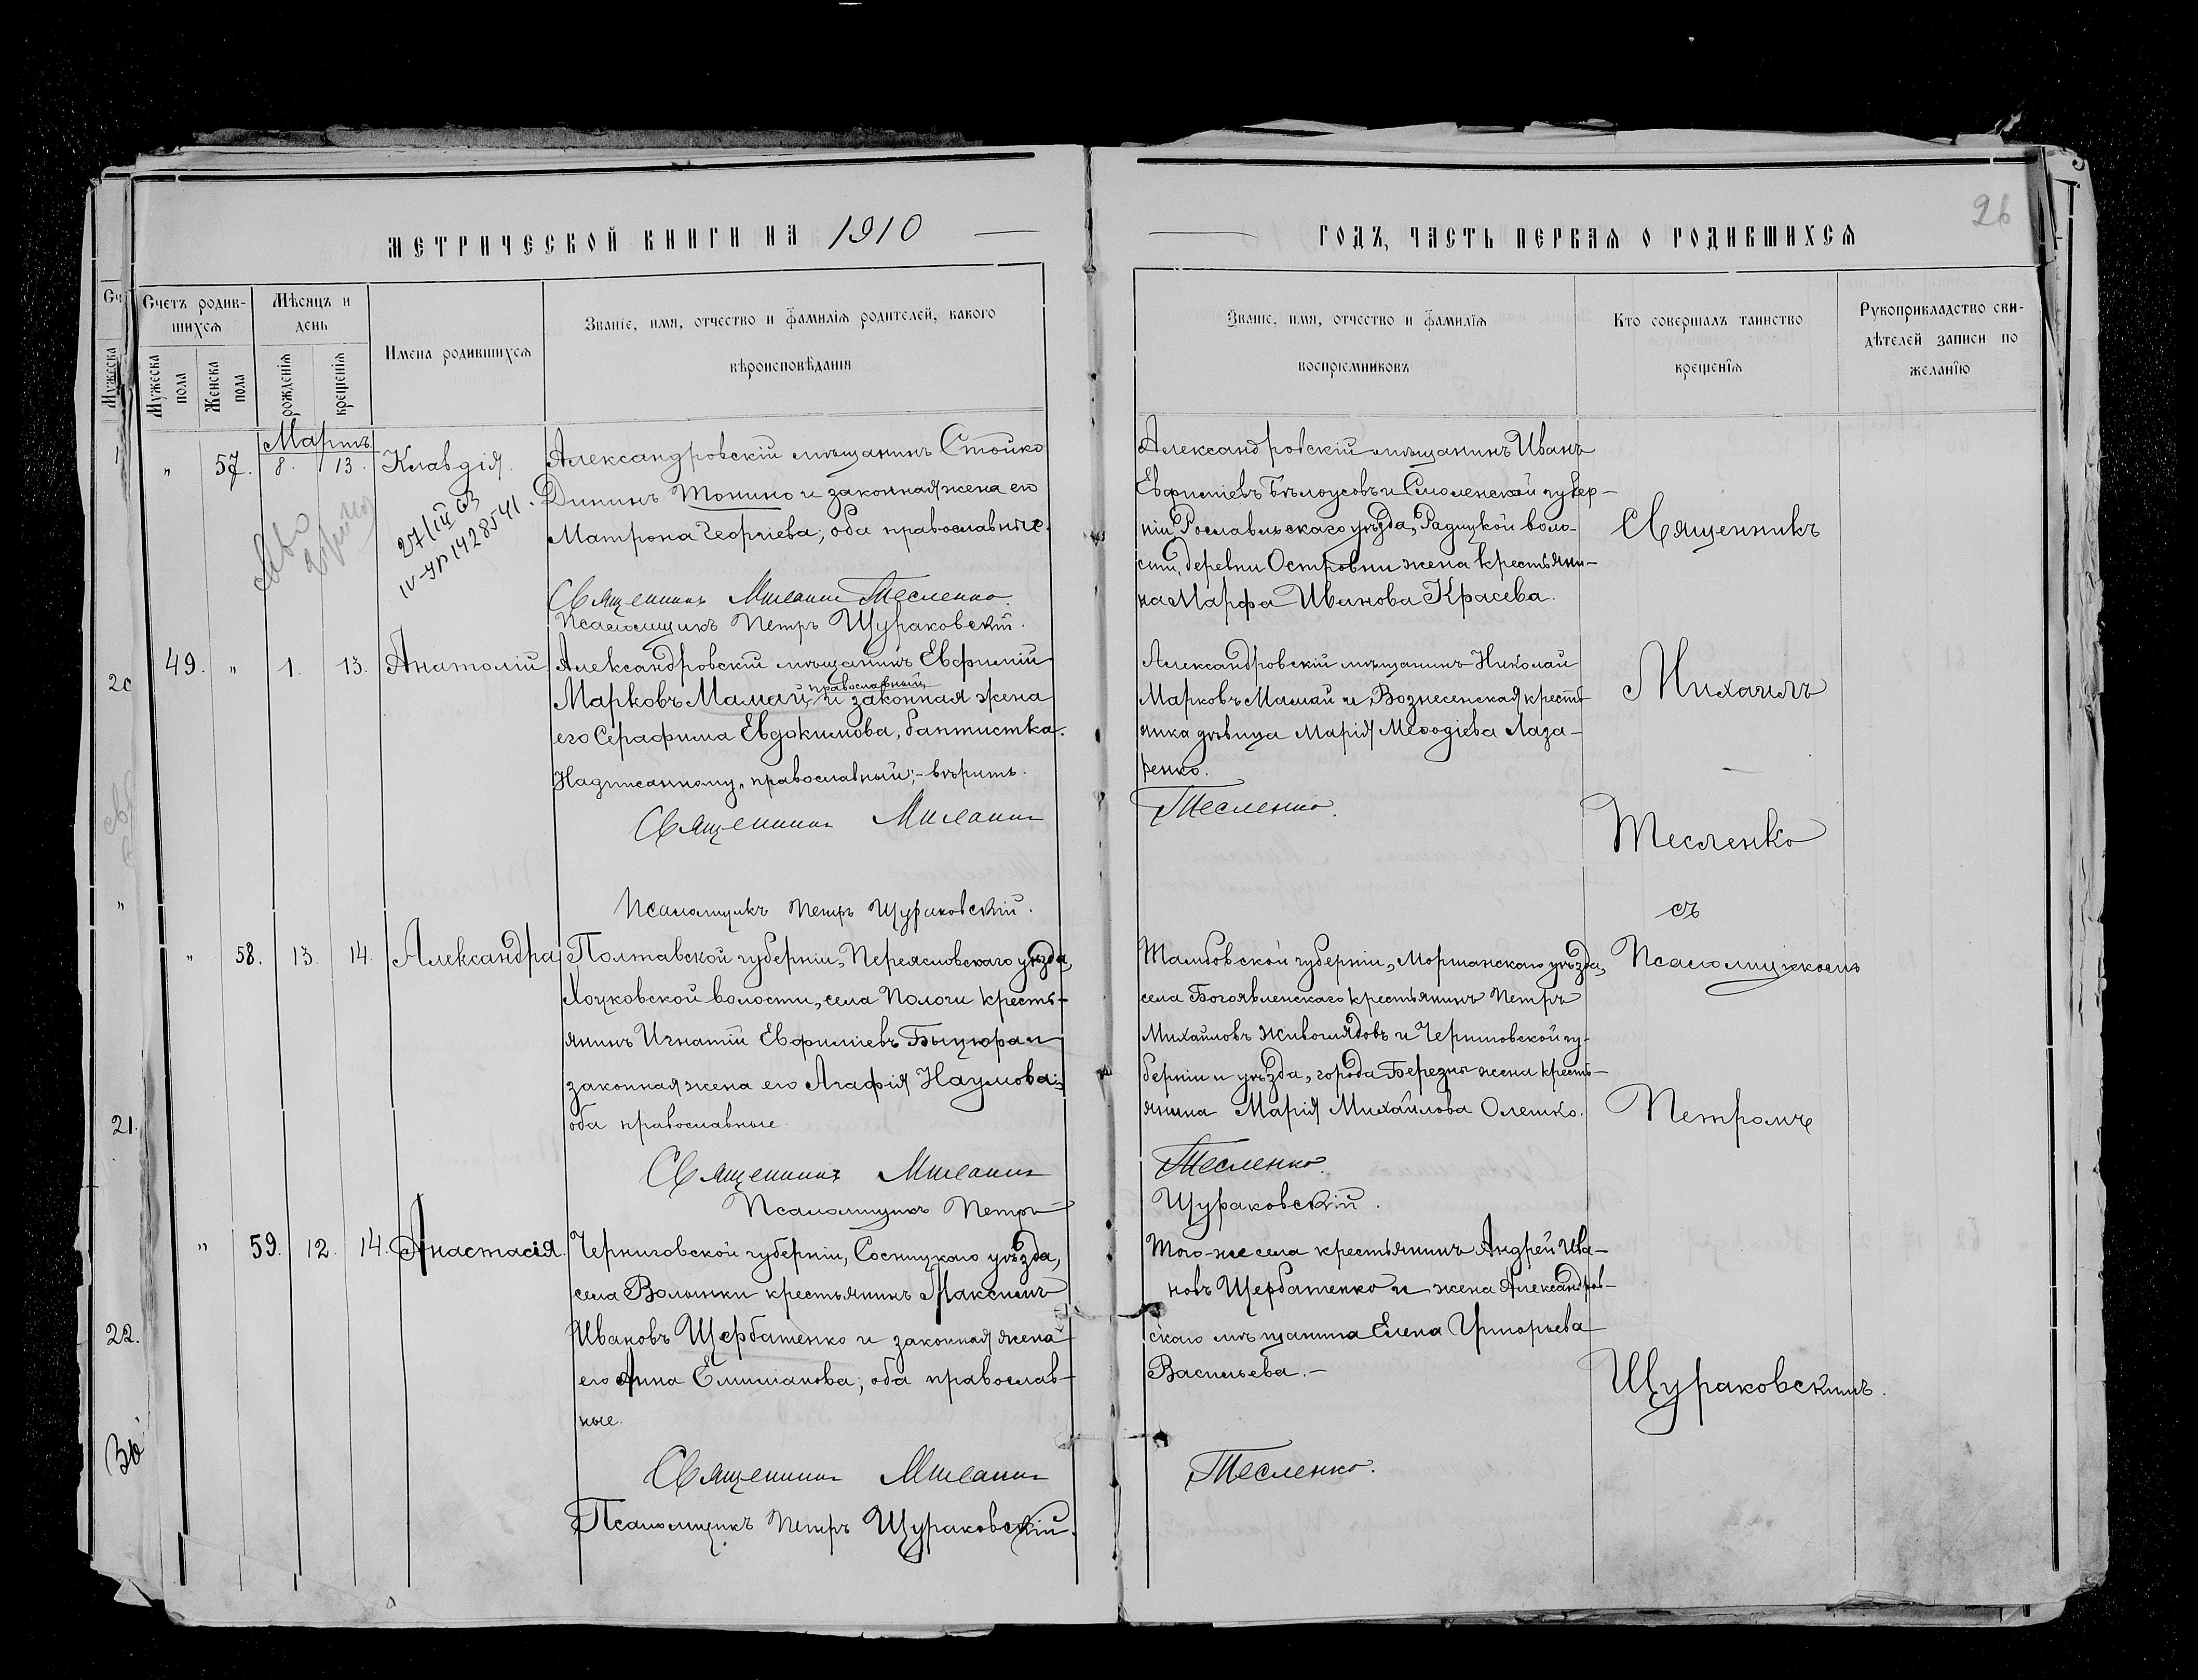 МЕТРИЧЕСКОЙ КНИГИ НА 1910
ГОДЪ, ЧАСТЬ ПЕРВАЯ О РОДИВШИХСЯ
26
Счетъ родив-
шихся
Мужеска
пола
Женска
пола
Мѣсяцъ и
день
рожденія
крещенія
Имена родившихся
Званіе, имя, отчество и фамилія родителей, какого
вѣроисповѣданія
Званіе, имя, отчество и фамилія
воспріемниковъ
Кто совершалъ таинство
крещенія
Рукоприкладство сви-
дѣтелей записи по
желанію
Мартъ
" 57. 8. 13. Клавдія.
27/III 63
IV-УР 1428541.
Александровскій мѣщанинъ Стойко
Дининъ Тонино и законная жена его
Матрона Георгіева; оба православные.
Священникъ Михаилъ Тесленко.
Псаломщикъ Петръ Щураковскій.
Александровскій мѣщанинъ Иванъ
Евфиміевъ Бѣлоусовъ и Смоленской губер-
ніи, Рославльскаго уѣзда, Радицкой воло-
сти, деревни Островни жена крестьяни-
на Марфа Иванова Красева.
49. " 1. 13. Анатолій
Александровскій мѣщанинъ Евфимій
православный
Марковъ Мамай, и законная жена
его Серафима Евдокимова, баптистка.
Надписанному „православный" - вѣрить.
Священникъ Михаилъ
Тесленко.
Псаломщикъ Петръ Щураковскій.
Александровскій мѣщанинъ Николай
Марковъ Мамай и Вознесенская кресть-
янка дѣвица Марія Меѳодіева Лаза-
ренко.
" 58. 13. 14. Александра
Полтавской губерніи, Переясловскаго уѣзда,
Хоцковской волости, села Пологи кресть-
янинъ Игнатій Евфиміевъ Быцюра и
законная жена его Агафія Наумова;
оба православные.
Священникъ Михаилъ
Тесленко.
Псаломщикъ Петръ
Щураковскій.
Тамбовской губерніи, Моршанскаго уѣзда,
села Богоявленскаго крестьянинъ Петръ
Михайловъ Живоглядовъ и Черниговской гу-
берніи и уѣзда, города Березны жена кресть-
янина Марія Михайлова Олешко.
" 59. 12. 14. Анастасія.
Черниговской губерніи, Сосницкаго уѣзда,
села Волынки крестьянинъ Максимъ
Ивановъ Щербатенко и законная жена
его Анна Емиліанова; оба православ-
ные.
Священникъ Михаилъ
Тесленко.
Псаломщикъ Петръ Щураковскій.
Того-же села крестьянинъ Андрей Ива-
новъ Щербатенко и жена Александров-
скаго мѣщанина Елена Григорьева
Васильева. -
Священникъ
Михаилъ
Тесленко
съ
Псаломщикомъ
Петромъ
Щураковскимъ.
21.
22.
30